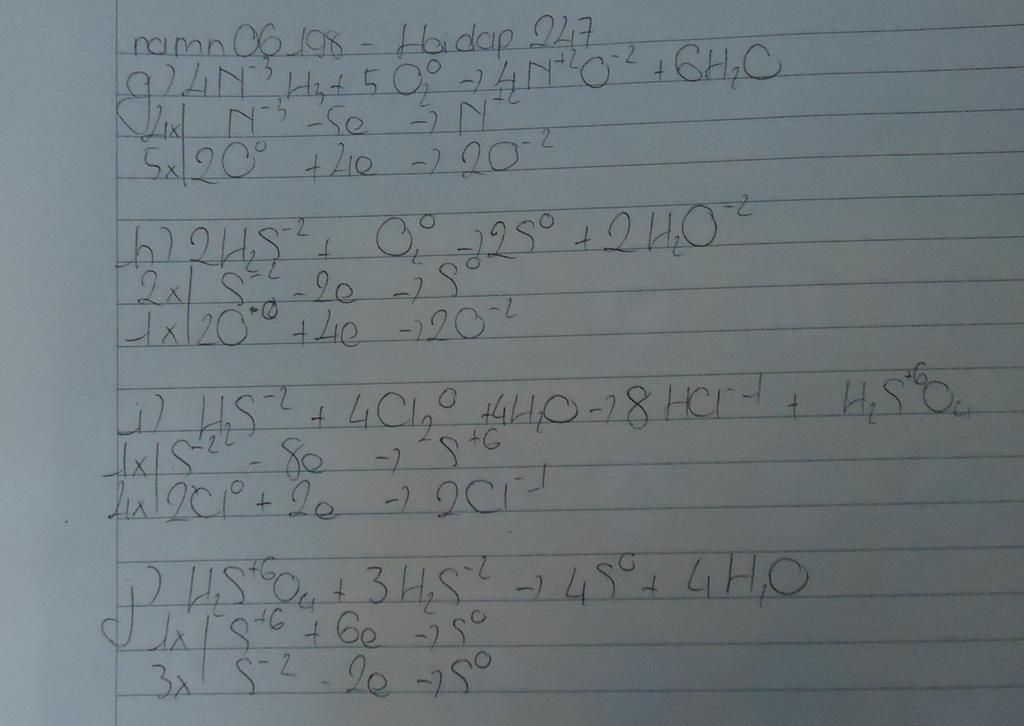 namn06198 - Hoidap 247
g) 4N⁻³H₃ + 5O₂⁰ → 4N⁺²O⁻² + 6H₂O
4x| N⁻³ - 5e → N⁺²
5x| 2O⁰ + 4e → 2O⁻²
h) 2H₂S⁻² + O₂⁰ → 2S⁰ + 2H₂O⁻²
2x| S⁻² - 2e → S⁰
1x| 2O⁰ + 4e → 2O⁻²
i) H₂S⁻² + 4Cl₂⁰ + 4H₂O → 8HCl⁻¹ + H₂S⁺⁶O₄
1x| S⁻² - 8e → S⁺⁶
4x| 2Cl⁰ + 2e → 2Cl⁻¹
j) H₂S⁺⁶O₄ + 3H₂S⁻² → 4S⁰ + 4H₂O
1x| S⁺⁶ + 6e → S⁰
3x| S⁻² - 2e → S⁰